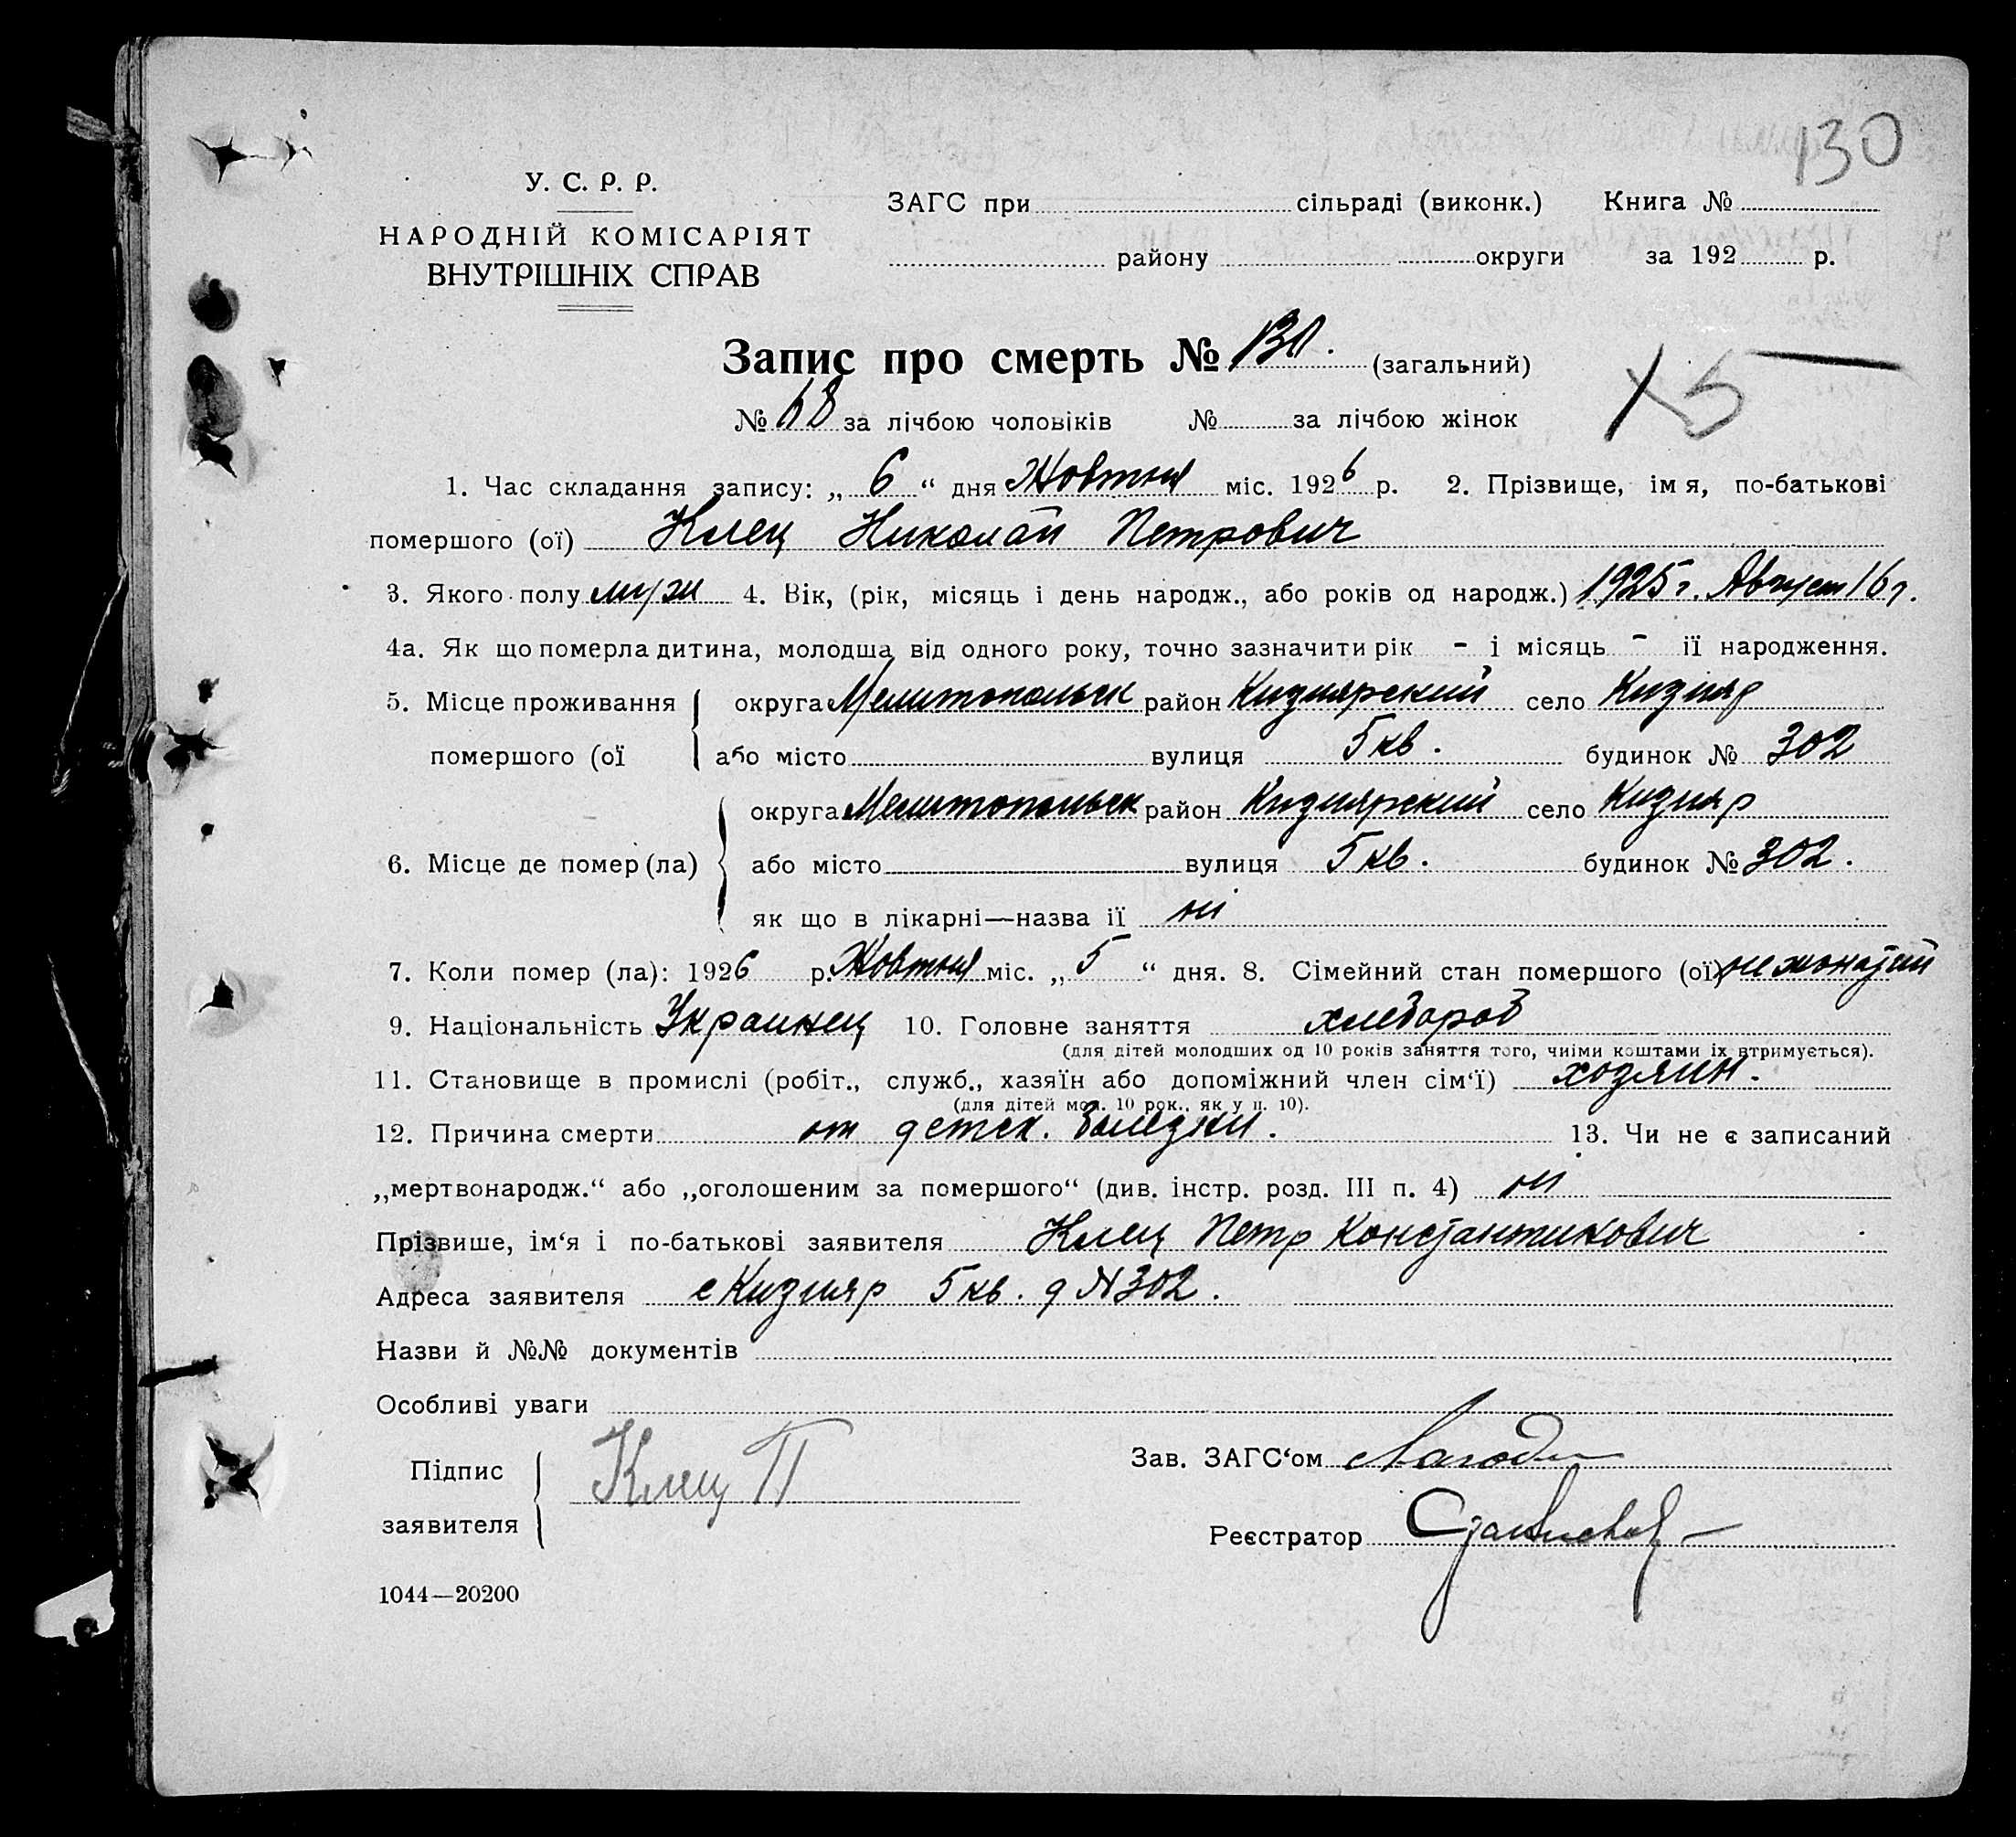 130
У. С. Р. Р.
НАРОДНІЙ КОМІСАРІЯТ
ВНУТРІШНІХ СПРАВ
ЗАГС при сільраді (виконк.) Книга №
району округи за 192 р.
Запис про смерть № 130. (загальний)
№ 68 за лічбою чоловіків № за лічбою жінок
15
1. Час складання запису: „ 6 “ дня Жовтня міс. 1926 р. 2. Прізвище, імя, по-батькові
помершого (ої) Клец Николай Петрович
3. Якого полу муж 4. Вік, (рік, місяць і день народж., або років од народж.) 1925 г. Август 16 д.
4а. Як що померла дитина, молодша від одного року, точно зазначити рік - і місяць - її народження.
5. Місце проживання помершого (ої округа Мелитопольск район Кизиярский село Кизияр
або місто вулиця 5 кв. будинок № 302
6. Місце де помер (ла) округа Мелитопольск район Кизиярский село Кизияр
або місто вулиця 5 кв. будинок № 302.
як що в лікарні—назва її ні
7. Коли помер (ла): 1926 р. Жовтня міс. „ 5 “ дня. 8. Сімейний стан помершого (ої) не жонатий
9. Національність Украинец 10. Головне заняття хлебороб
(для дітей молодших од 10 років заняття того, чиїми коштами їх втримується).
11. Становище в промислі (робіт., служб., хазяїн або допоміжний член сім‘ї) хозяин.
(для дітей мол. 10 рок., як у п. 10).
12. Причина смерти от детск. болезни. 13. Чи не є записаний
„мертвонародж.“ або „оголошеним за помершого“ (див. інстр. розд. III п. 4) ні
Прізвише, ім‘я і по-батькові заявителя Клец Петр Константинович
Адреса заявителя с Кизияр 5 кв. д N 302.
Назви й №№ документів
Особливі уваги
Підпис заявителя Клец П
Зав. ЗАГС‘ом
Реєстратор
1044—20200